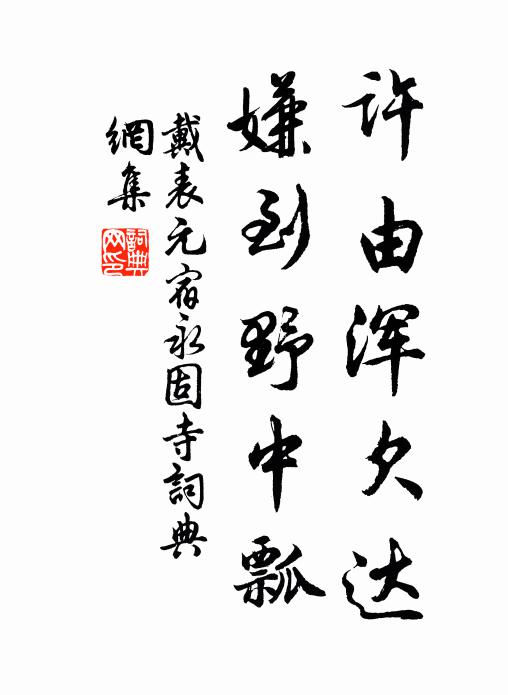 许由浑欠达
嫌到野中瓢
戴表元宿永固寺詞典
網集
詞典
网印